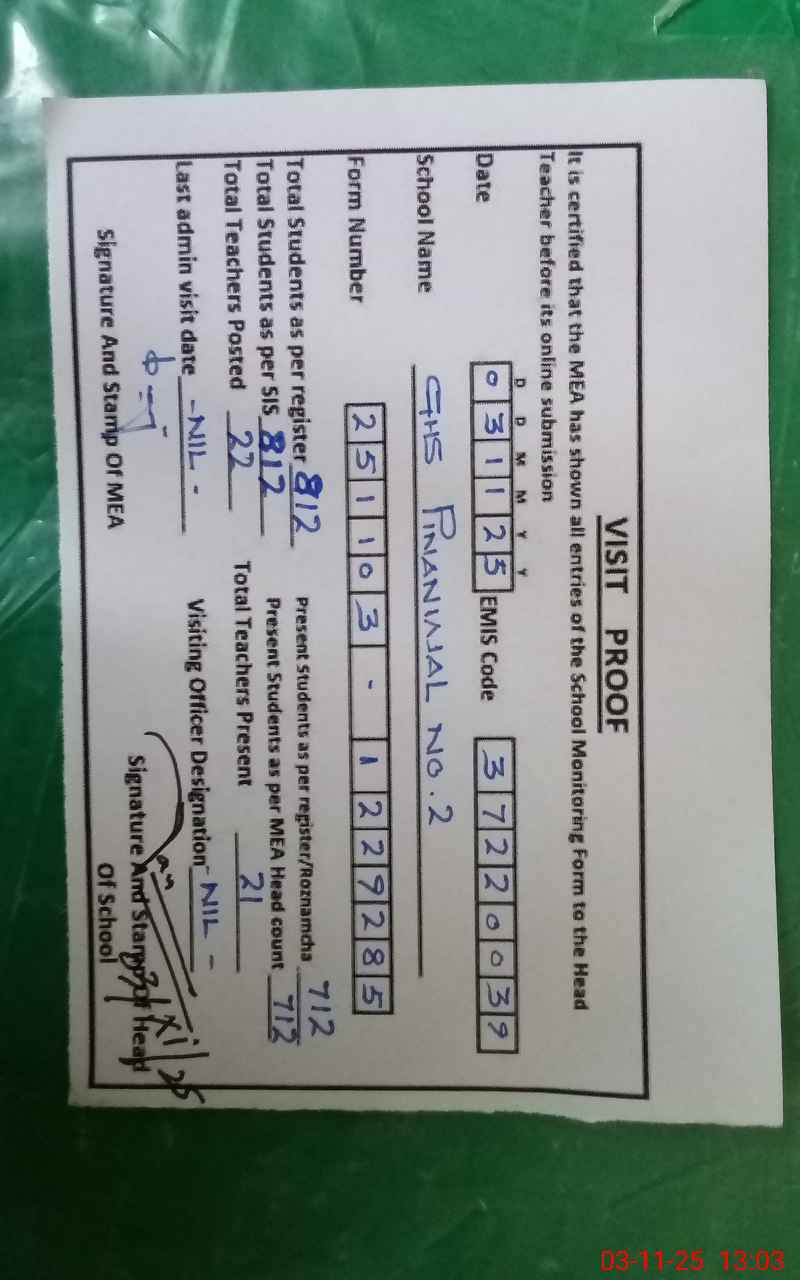 VISIT PROOF
It is certified that the MEA has shown all entries of the School Monitoring Form to the Head
Teacher before its online submission
D D M M Y Y
Date 031125 EMIS Code 37220039
School Name GHS PINANWAL NO.2
Form Number 251103-1229285
Total Students as per register 812 Present Students as per register/Roznamcha 712
Total Students as per SIS 812 Present Students as per MEA Head count 712
Total Teachers Posted 22 Total Teachers Present 21
Last admin visit date -NIL- Visiting Officer Designation -NIL-
Signature And Stamp Of MEA Signature And Stamp Of Head
Of School
03-11-25 13:03